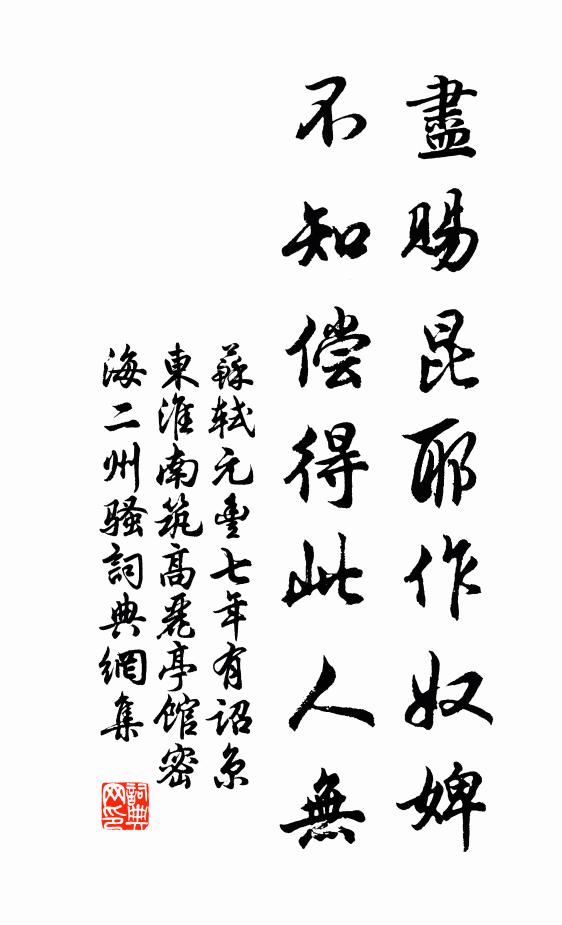 盡賜昆耶作奴婢
不知偿得此人無
蘇軾元豐七年有詔京
東淮南筑高麗亭館密
海二州骚詞典網集
詞典
网印